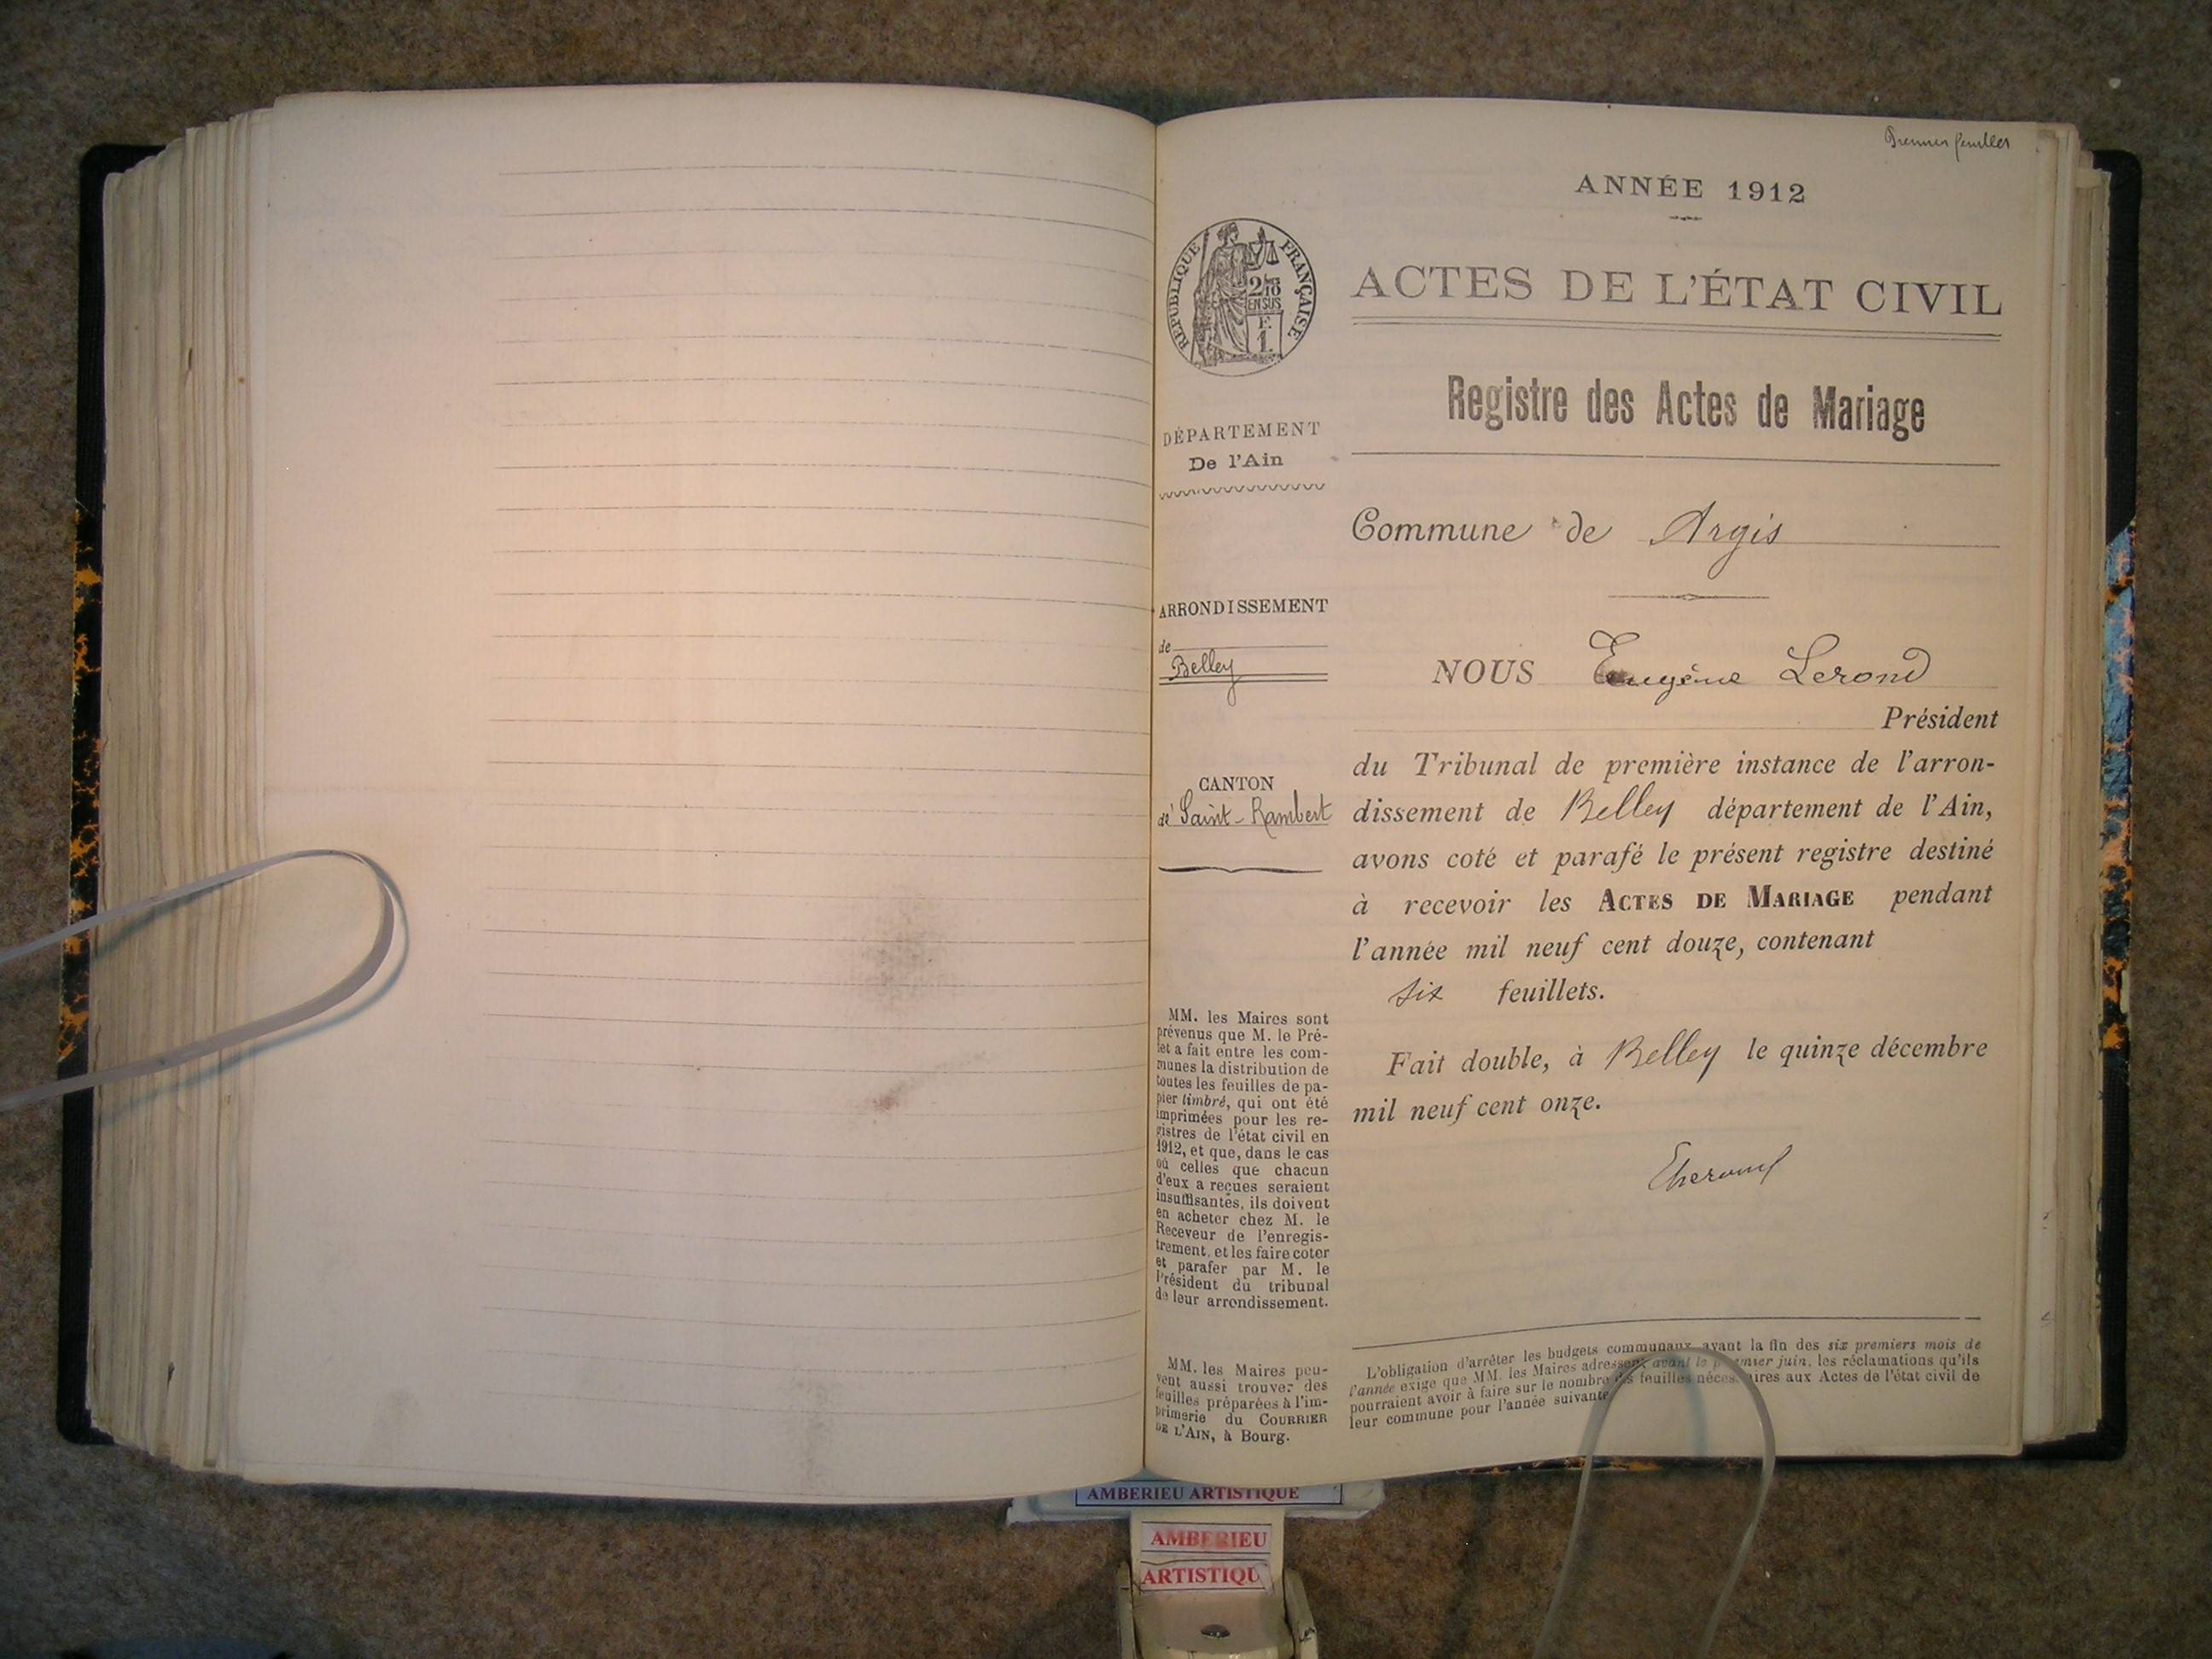 Premier feuillet
ANNÉE 1912
ACTES DE L'ÉTAT CIVIL
Registre des Actes de Mariage
RÉPUBLIQUE FRANÇAISE
2/10
EN SUS
F.
1.
DÉPARTEMENT
De l'Ain
ARRONDISSEMENT
de
Belley
CANTON
de Saint-Rambert
MM. les Maires sont
prévenus que M. le Pré-
fet a fait entre les com-
munes la distribution de
toutes les feuilles de pa-
pier timbré, qui ont été
imprimées pour les re-
gistres de l'état civil en
1912, et que, dans le cas
où celles que chacun
d'eux a reçues seraient
insuffisantes, ils doivent
en acheter chez M. le
Receveur de l'enregis-
trement, et les faire coter
et parafer par M. le
Président du tribunal
de leur arrondissement.
MM. les Maires peu-
vent aussi trouver des
feuilles préparées à l'im-
primerie du COURRIER
DE L'AIN, à Bourg.
Commune de Argis
NOUS Eugène Lerond
Président
du Tribunal de première instance de l'arron-
dissement de Belley département de l'Ain,
avons coté et parafé le présent registre destiné
à recevoir les ACTES DE MARIAGE pendant
l'année mil neuf cent douze, contenant
six feuillets.
Fait double, à Belley le quinze décembre
mil neuf cent onze.
L'obligation d'arrêter les budgets communaux avant la fin des six premiers mois de
l'année exige que MM. les Maires adressent avant le premier juin, les réclamations qu'ils
pourraient avoir à faire sur le nombre des feuilles nécessaires aux Actes de l'état civil de
leur commune pour l'année suivante
AMBERIEU ARTISTIQUE
AMBERIEU
ARTISTIQU